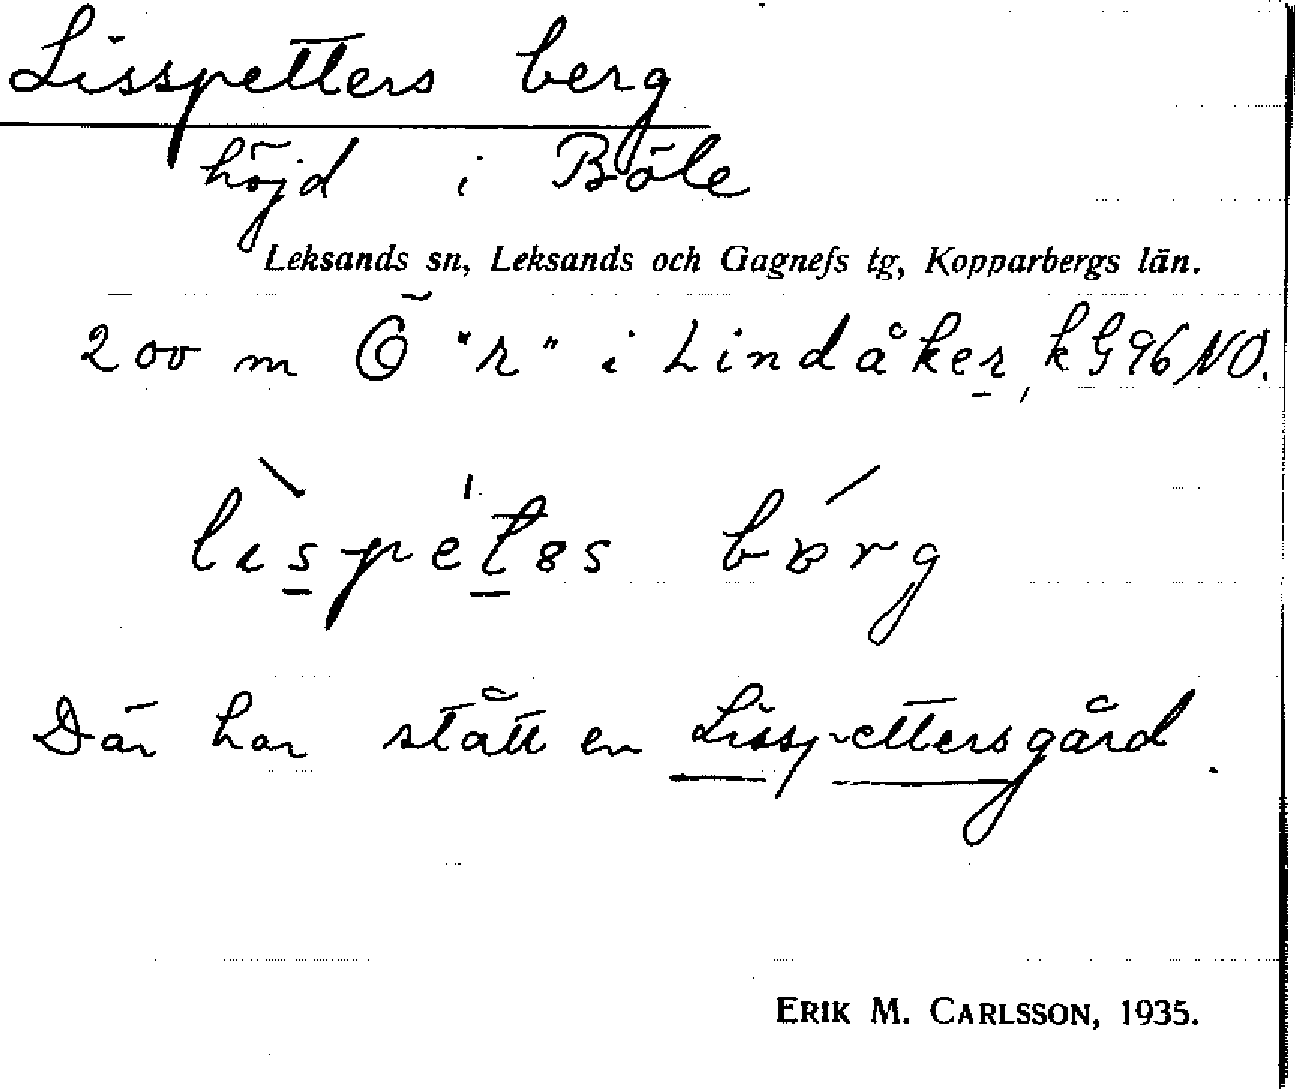 Lisspetters berg
höjd i Böle
Leksands sn, Leksands och Gagnefs tg, Kopparbergs län.
200 m Ö "r" i Lindåker, kG96NO.
Där har stått en Lisspettersgård.
ERIK M. CARLSSON, 1935.